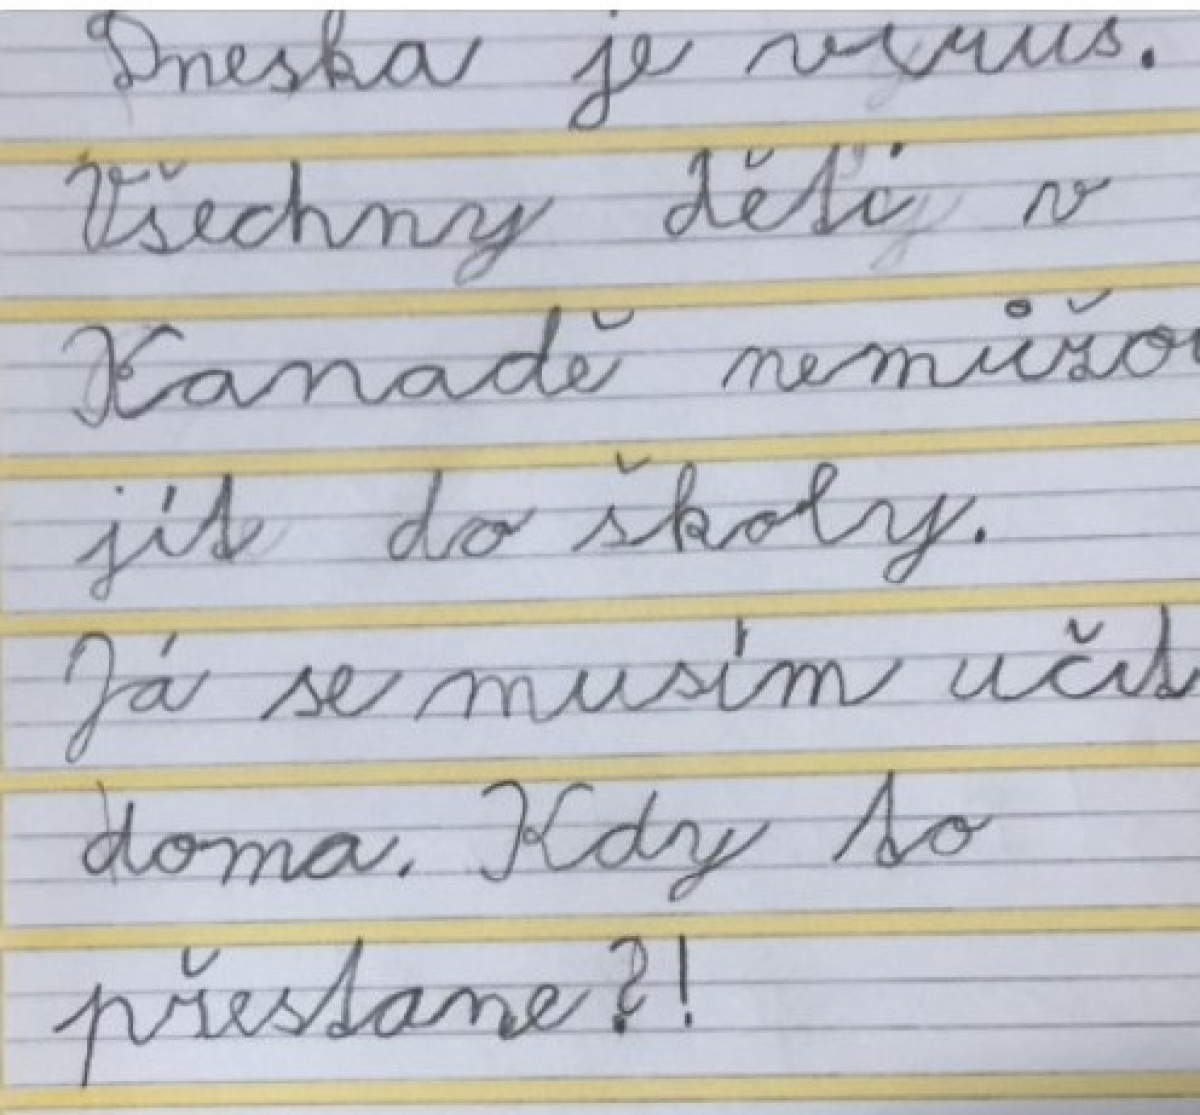 Dneska je virus.
Všechny děti v
Kanadě nemůžou
jít do školy.
Já se musím učit
doma. Kdy to
přestane?!